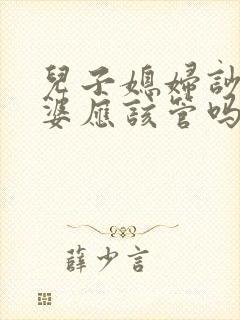 兒子媳婦訟
婆應該管嗎
薛少言